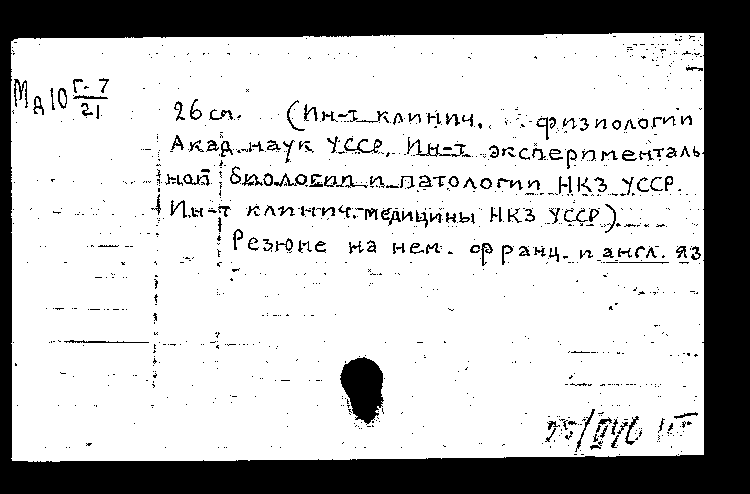 Мд10 Г-7
21
26 см. (Ин-т клинич. физиологии
Акад. наук УССР. Ин-т эксперименталь-
ной биологии и патологии НКЗ УССР.
Ин-т клинич. медицины НКЗ УССР).
Резюме на нем. франц. и англ. яз